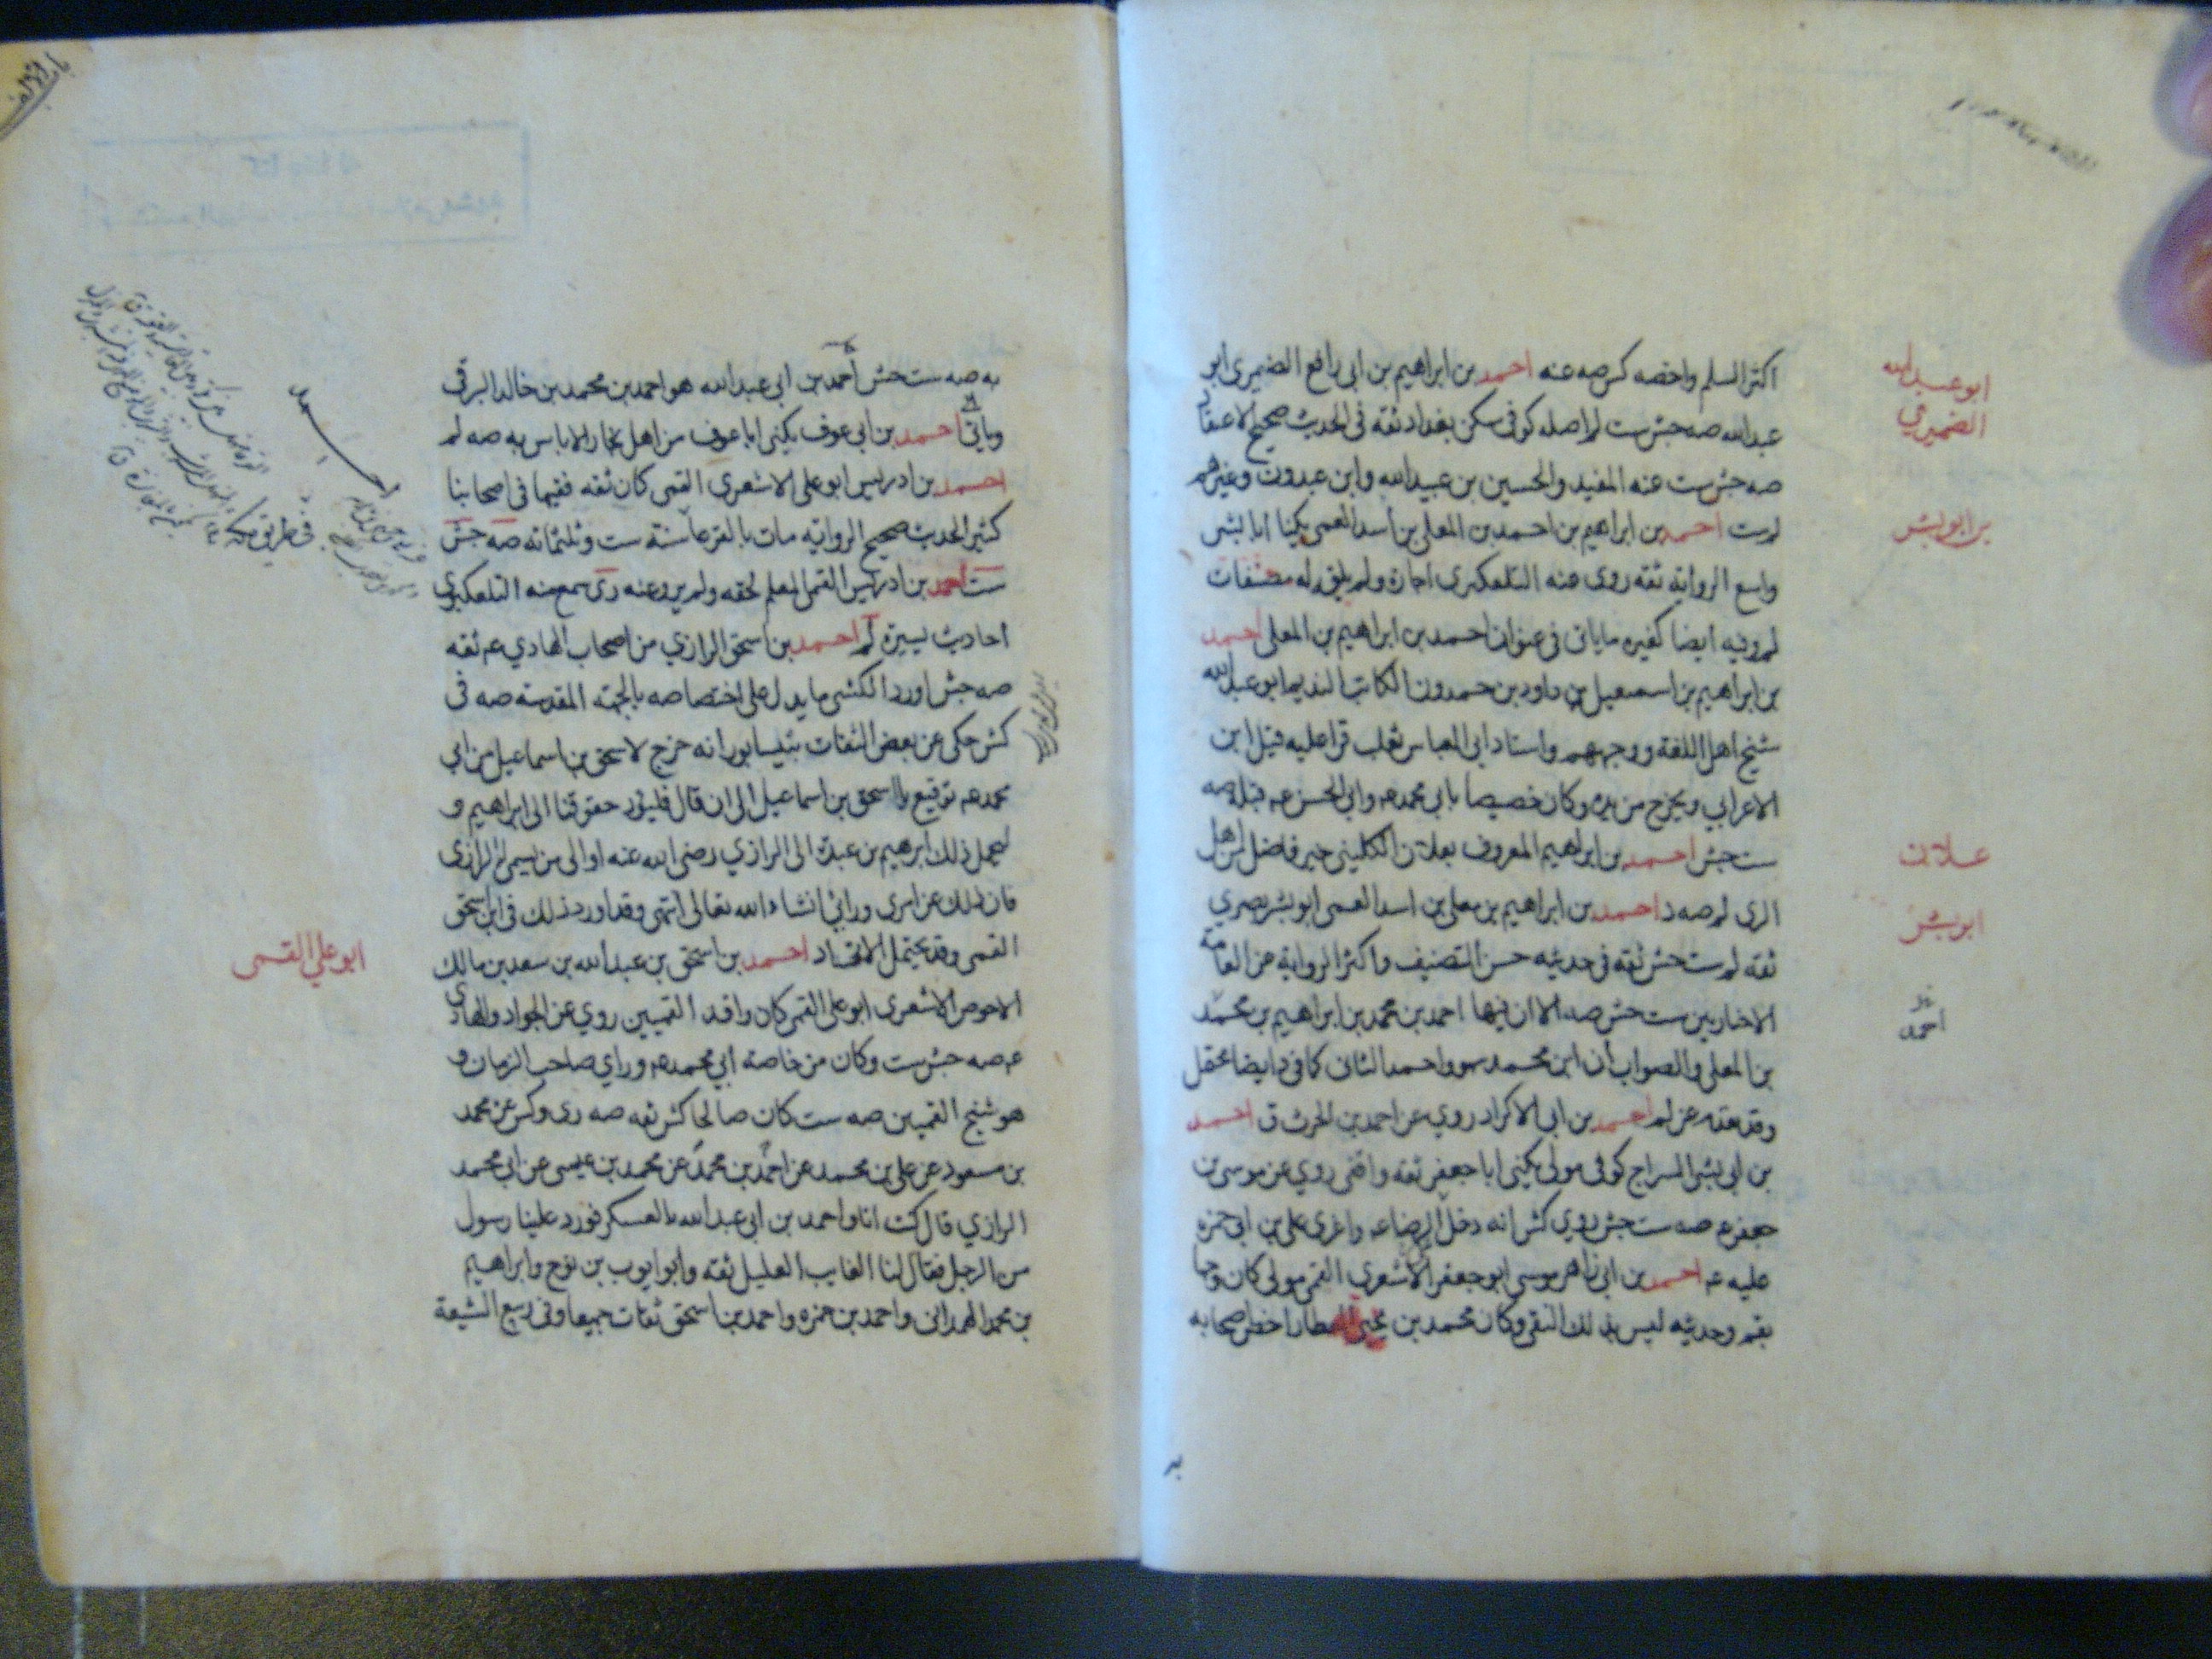 اكثر المسلم واخصه كر صه عنه احمد بن ابراهيم بن ابى رافع الضميرى ابو
عبدالله صه جش ست لم اصله كوفى سكن بغداد ثقة فى الحديث صحيح الاعتقاد
صه جش ست عنه المفيد والحسين بن عبيدالله وابن عبدون وغيرهم
لم ست احمد بن ابراهيم بن احمد بن المعلى بن اسد العمى يكنا ابا بشر
واسع الرواية ثقه روى عنه التلعكبرى اجازة ولم يلقه له مصنفات
لم وفيه ايضا كغيره ماياتى فى عنوان احمد بن ابراهيم بن المعلى احمد
بن ابراهيم بن اسمعيل بن داود بن حمدون الكاتب النديم ابو عبدالله
شيخ اهل اللغة ووجههم واستاد ابى العباس ثعلب قرا عليه قبل ابن
الاعرابي وتخرج من يده وكان خصيصا بابى محمد عه وابى الحسن عه قبله صه
ست جش احمد بن ابراهيم المعروف بعلان الكلينى خير فاضل من اهل
الرى لم صه د احمد بن ابراهيم بن معلى بن اسد العمى ابو بشر بصري
ثقه لم ست جش ثقه فى حديثه حسن التصنيف واكثر الرواية عن العامة
الاخباريين ست جش صه الا ان فيها احمد بن محمد بن ابراهيم بن محمد
بن المعلى والصواب ان ابن محمد سهو واحمد الثانى كما فى د ايضا
احمد بن ابى الاكراد روي عن احمد بن الحرث ق احمد
بن ابى بشر السراج كوفى مولى يكنى ابا جعفر ثقه واقفى روي عن موسى بن
جعفر عه صه ست جش روي كش انه دخل الرضا عه على بن ابى حمزه
عليه عه احمد بن ابى زاهر موسى ابو جعفر الاشعري القمى مولى كان وجها
بقم وحديثه ليس بذلك النقى وكان محمد بن يحيى العطار اخص اصحابه
ابو عبدالله
الضميري
بن ابو بشر
علان
ابو بشر
احمد
به صه ست جش احمد بن ابى عبدالله هو احمد بن محمد بن خالد البرقى
وياتى احمد بن ابى عوف يكنى ابا عوف من اهل بخارا لا باس به صه لم
احمد بن ادريس ابو على الاشعري القمى كان ثقه فقيها فى اصحابنا
كثير الحديث صحيح الرواية مات بالقرعا سنة ست وثلثمائه صه جش
ست احمد بن ادريس القمى المعلم لحقه ولم يرو عنه رى سمع منه التلعكبرى
احاديث يسيره لم احمد بن اسحق الرازي من اصحاب الهادي عه ثقه
صه جش اورد الكشى ما يدل على اختصاصه بالجهة المقدسة صه فى
كش حكى عن بعض الثقات بنيسابور انه خرج لاسحق بن اسماعيل من ابى
محمد عه توقيع يا اسحق بن اسماعيل الى ان قال فليؤد حقوقنا الى ابراهيم و
ليحمل ذلك ابرهيم بن عبدة الى الرازي رضى الله عنه او الى من يسمى له الرازى
فان ذلك عن امرى ورايى انشاء الله تعالى انتهى وقد اورد ذلك فى ابن اسحق
القمى وقد يحتمل الاتحاد احمد بن اسحق بن عبدالله بن سعد بن مالك
الاحوص الاشعرى ابو على القمى كان وافد القميين روي عن الجواد والهادى
عه صه جش ست وكان من خاصة ابى محمد عه وراي صاحب الزمان و
هو شيخ القميين صه ست كان صالحا كش ثقه صه رى و كر عن محمد
بن مسعود عن على بن محمد عن احمد بن محمد عن محمد بن عيسى عن ابى محمد
الرازي قال كنت انا واحمد بن ابى عبدالله بالعسكر فورد علينا رسول
من الرجل فقال لنا الغايب العليل ثقه وابو ايوب بن نوح وابراهيم
بن محمد الهمدانى واحمد بن حمزه واحمد بن اسحق ثقات جميعا وفى ربيع الشيعة
ابو على القمى
فى طريق مكة